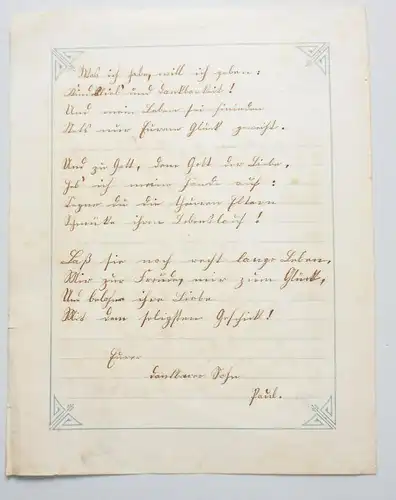 Was ich habe, will ich geben:
Kindeslieb' und Dankbarkeit!
Und mein Leben sei hinieden
Stets nur Eurem Glück geweiht.
Und zu Gott, dem Gott der Liebe,
Heb' ich meine Hände auf:
Segne du die theuren Eltern
Schmücke ihren Lebenslauf!
Laß sie noch recht lange Leben,
Mir zur Freude, mir zum Glück,
Und belohne ihre Liebe
Mit dem seligsten Geschick!
Eurer
dankbarer Sohn
Paul.